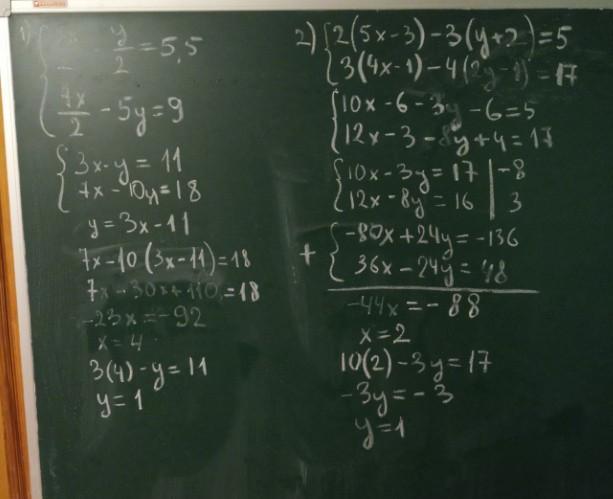 1)
y/2 = 5,5
7x/2 - 5y = 9
3x - y = 11
7x - 10y = 18
y = 3x - 11
7x - 10(3x - 11) = 18
7x - 30x + 110 = 18
-23x = -92
x = 4
3(4) - y = 11
y = 1
2) 2(5x - 3) - 3(y + 2) = 5
3(4x - 1) - 4(2y - 1) = 17
10x - 6 - 3y - 6 = 5
12x - 3 - 8y + 4 = 17
10x - 3y = 17 | -8
12x - 8y = 16 | 3
+ -80x + 24y = -136
36x - 24y = 48
-44x = -88
x = 2
10(2) - 3y = 17
-3y = -3
y = 1